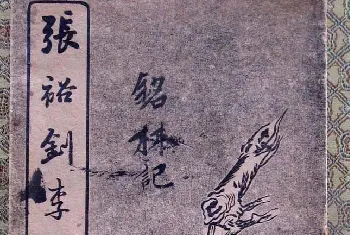 銘林記
張裕釗李